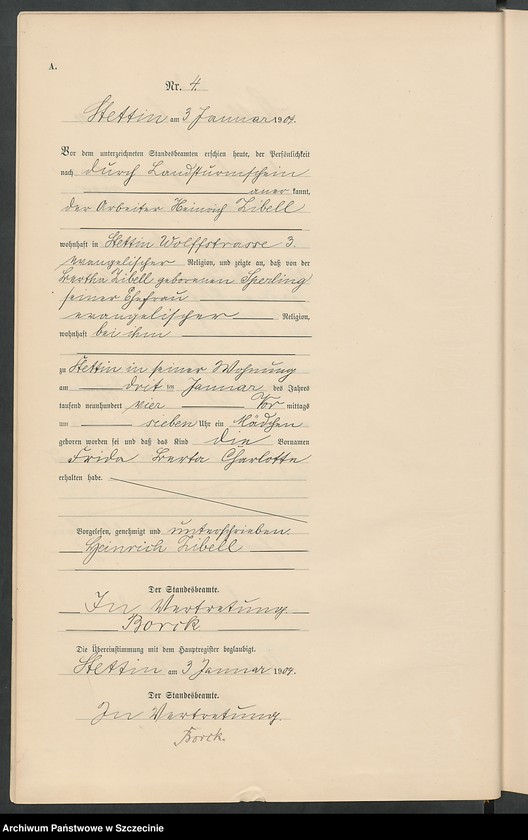 A.
Nr. 4.
Stettin am 3 Januar 1904.
Vor dem unterzeichneten Standesbeamten erschien heute, der Persönlichkeit
nach durch Landsturmschein
aner kannt,
der Arbeiter Heinrich Zibell
wohnhaft in Stettin Wolffstrasse 3.
evangelischer Religion, und zeigte an, daß von der
Bertha Zibell geborenen Sperling
seiner Ehefrau
evangelischer Religion,
wohnhaft bei ihm
zu Stettin in seiner Wohnung
am drit ten Januar des Jahres
tausend neunhundert vier Vor mittags
um sieben Uhr ein Mädchen
geboren worden sei und daß das Kind die Vornamen
Frida Berta Charlotte
erhalten habe.
Vorgelesen, genehmigt und unterschrieben.
Heinrich Zibell
Der Standesbeamte.
In Vertretung
Borck.
Die Übereinstimmung mit dem Hauptregister beglaubigt.
Stettin am 3 Januar 1904.
Der Standesbeamte.
In Vertretung.
Borck.
Archiwum Państwowe w Szczecinie